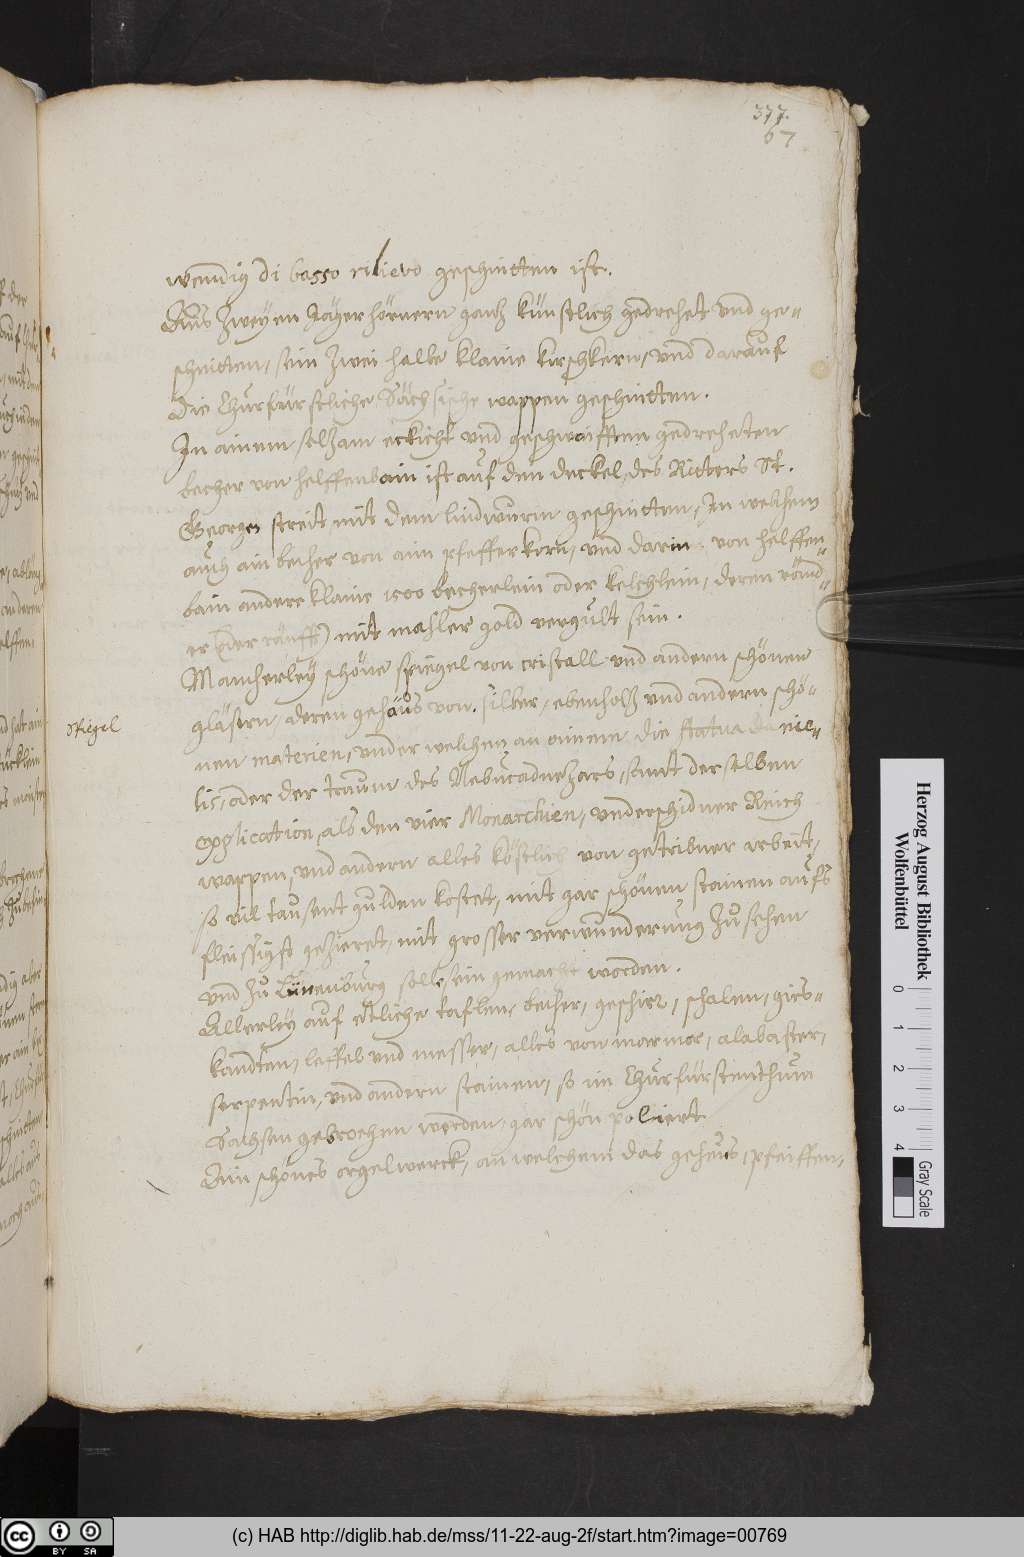 377.
67
wendig di basso rilievo geschnitten ist.
Aus zweyen Jägerhörnern gantz künstlich gedrehet und ge-
schnitten, sein zwei halbe klaine kirschkern, und darauf
die Churfürstliche Sächsische wappen geschnitten.
In ainem selzam eckicht und geschwaifften gedreheten
becher von helffenbain ist auf den deckel des Ritters St.
Georgen streit mit dem lindwurm geschnitten, In welchem
auch ain becher von aim pfefferkorn, und darin von helffen-
bain andere klaine 1500 becherlein oder kelchlein, deren ränd-
er (oder räufft) mit mahler gold vergült sein.
Spiegel
Mancherley schöne spiegel von cristall und andern schönen
gläsern, deren gehäus von silber, ebenholtz und andern schö-
nen materien, under welchen an einem die statua Danie-
lis, oder der traum des Nebucadnezars, samt derselben
explication, als den vier Monarchien, underschidner Reich
wappen, und andern alles köstlich von getribner arbeit,
so vil tausent gulden kostet, mit gar schönen stainen aufs
fleissigst gezieret, mit grosser verwunderung zu sehen
und zu Lünenburg solle sein gemacht worden.
Allerley auf etliche taflen, becher, geschirr, schalen, gies-
kandten, leffel und messer, alles von marmor, alabaster,
serpentin, und andern stainen, so im Churfürstenthum
Sachsen gebrochen werden, gar schön poliert.
Ain schönes orgelwerck, an welchem das geheus, pfeiffen,
Herzog August Bibliothek
Wolfenbüttel
0 1 2 3 4
Gray Scale
cc BY SA
(c) HAB http://diglib.hab.de/mss/11-22-aug-2f/start.htm?image=00769